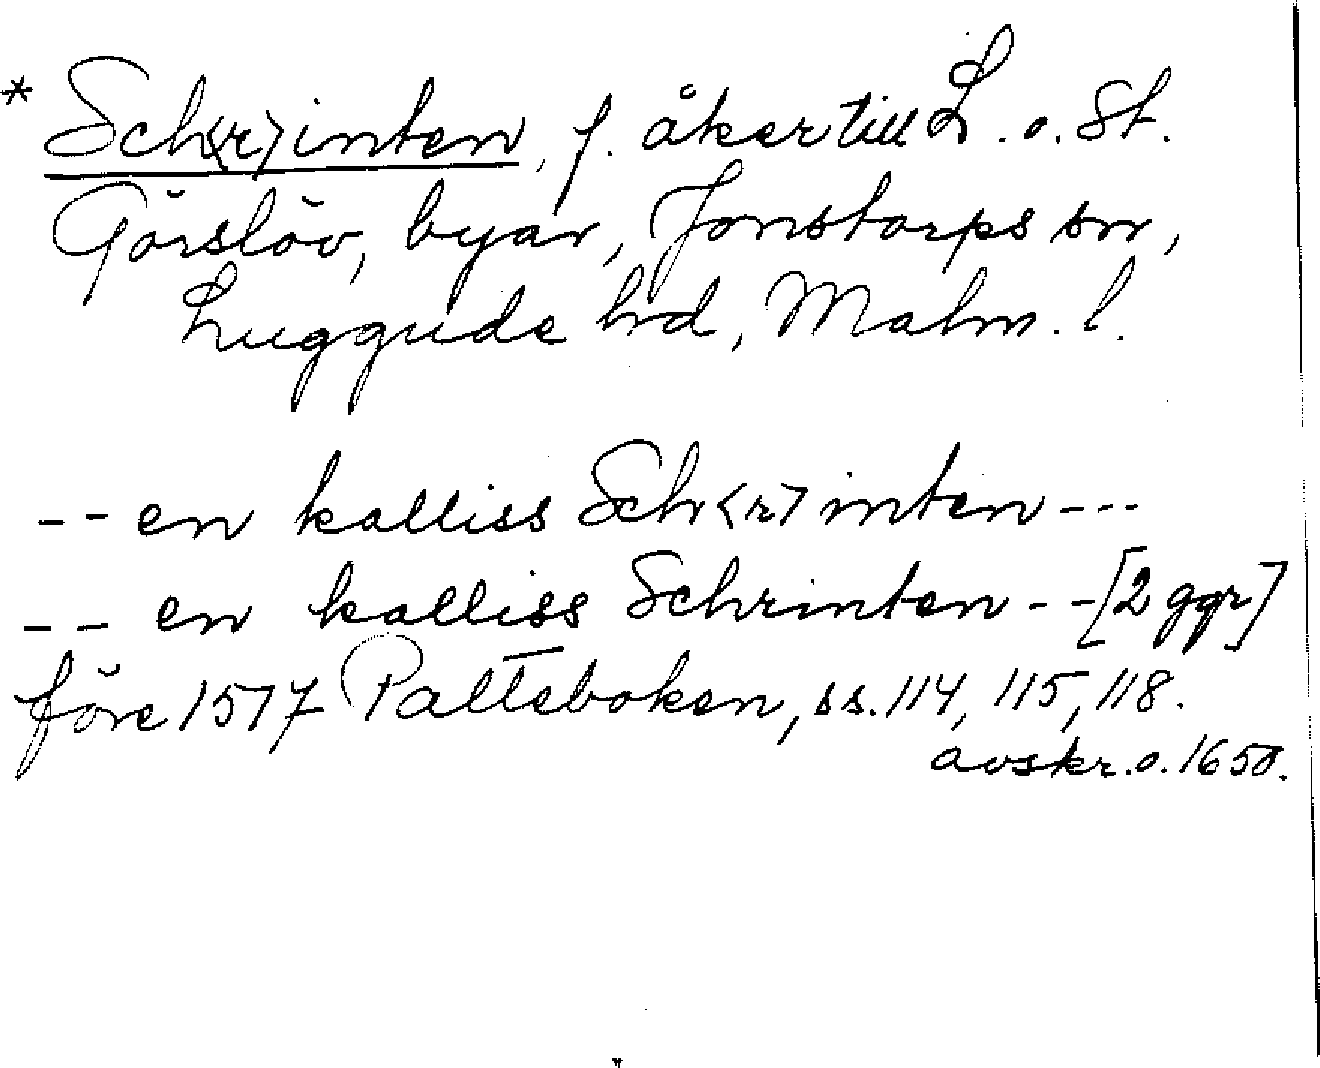 * Sch<r>inten, f. åker till L. o. St.
Görslöv, byar, Jonstorps sn,
Luggude hd, Malm. l.
-- en kalliss Sch<r>inten ---
-- en kalliss Schrinten -- [2 ggr]
före 1517 Palteboken, ss. 114, 115, 118.
avskr. o. 1650.